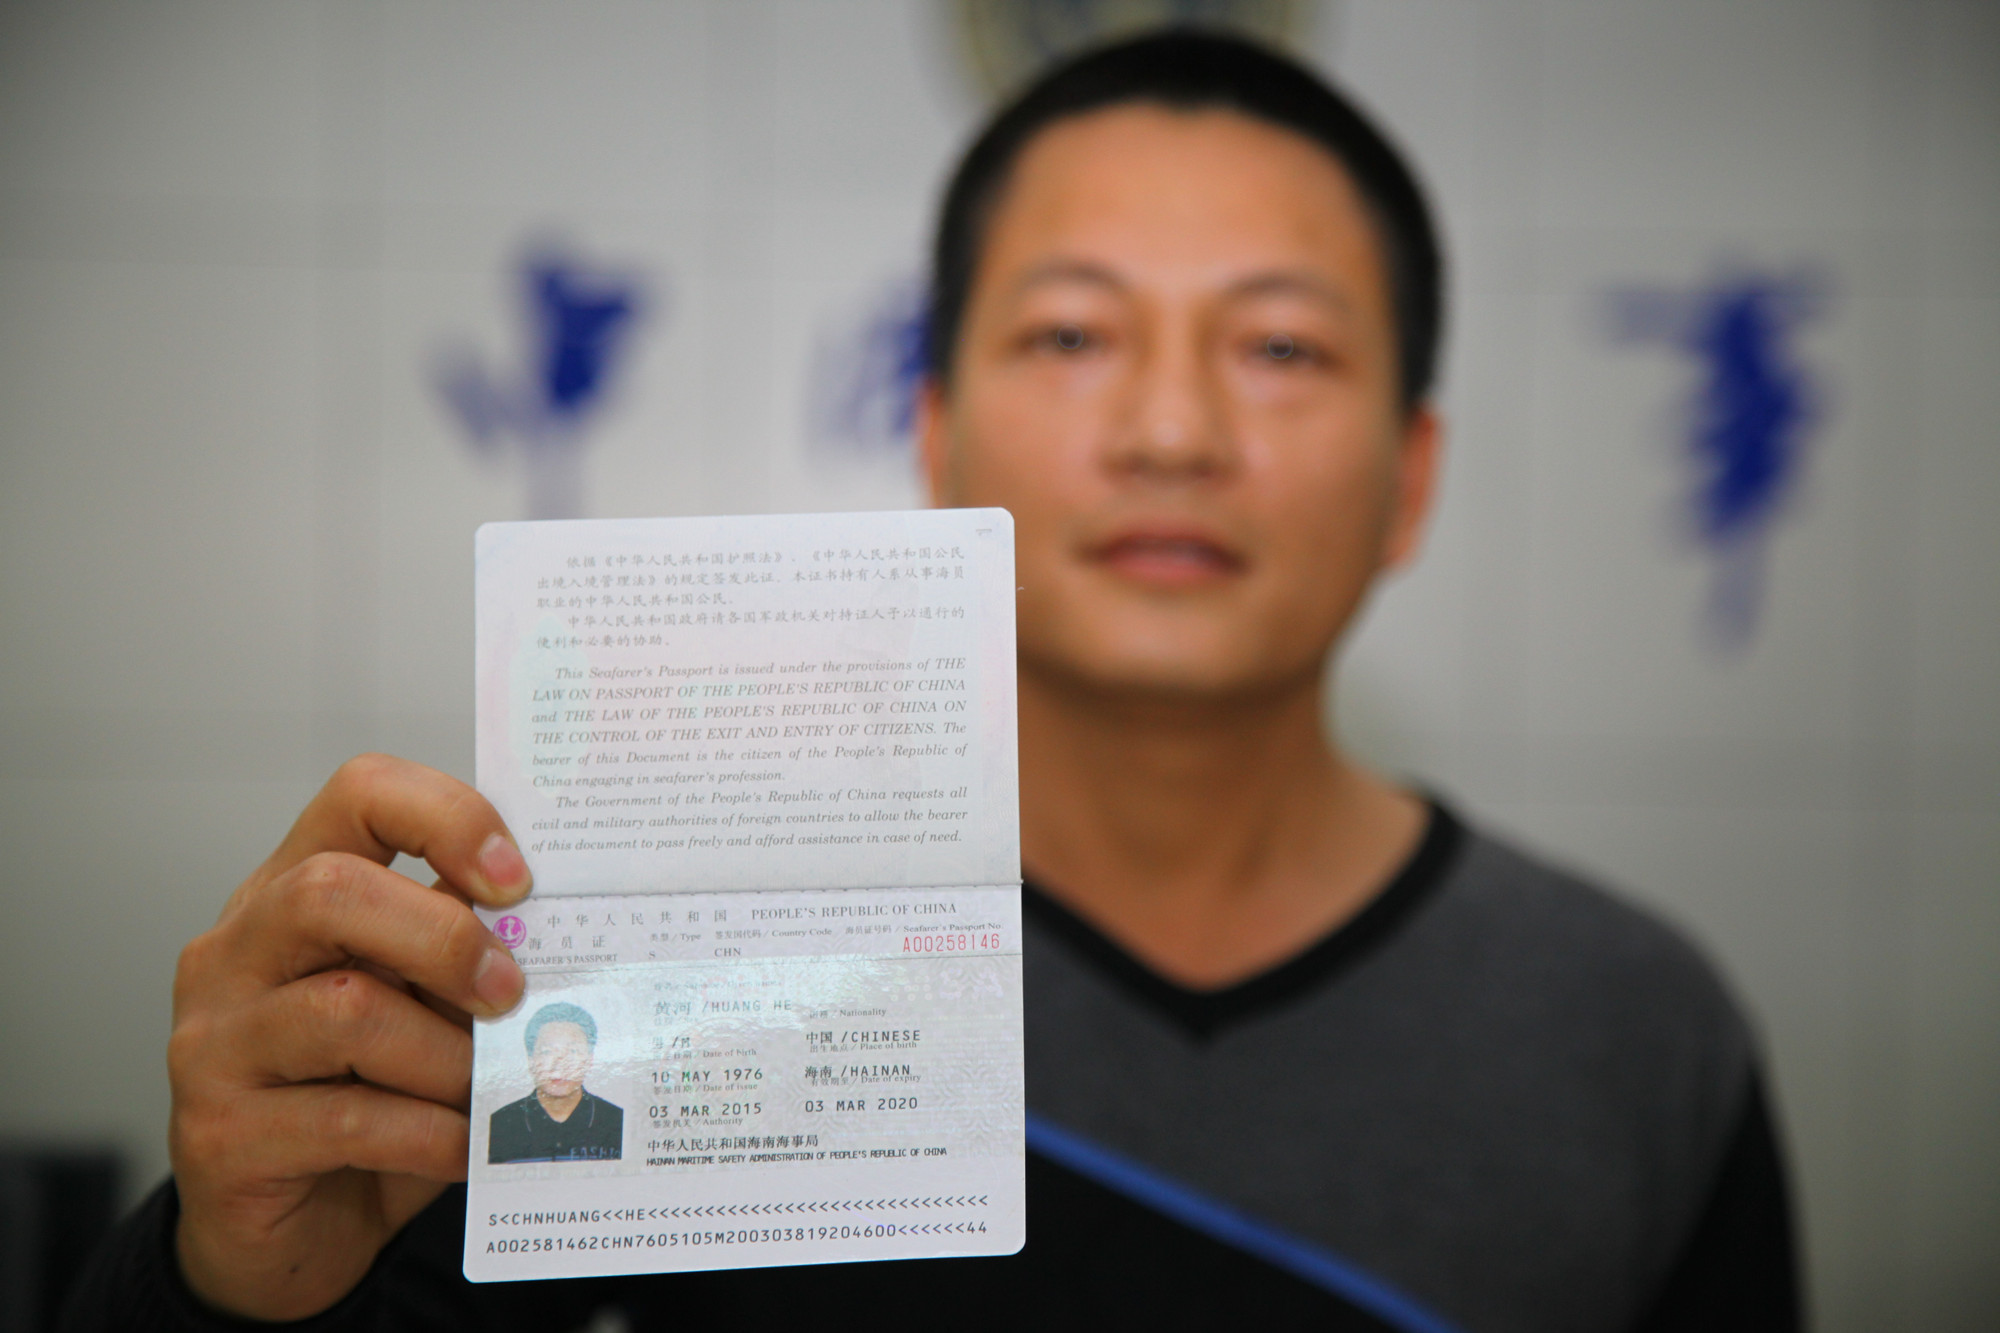 依据《中华人民共和国护照法》、《中华人民共和国公民
出境入境管理法》的规定签发此证。本证书持有人系从事海员
职业的中华人民共和国公民。
中华人民共和国政府请各国军政机关对持证人予以通行的
便利和必要的协助。
This Seafarer's Passport is issued under the provisions of THE
LAW ON PASSPORT OF THE PEOPLE'S REPUBLIC OF CHINA
and THE LAW OF THE PEOPLE'S REPUBLIC OF CHINA ON
THE CONTROL OF THE EXIT AND ENTRY OF CITIZENS. The
bearer of this Document is the citizen of the People's Republic of
China engaging in seafarer's profession.
The Government of the People's Republic of China requests all
civil and military authorities of foreign countries to allow the bearer
of this document to pass freely and afford assistance in case of need.
中华人民共和国 PEOPLE'S REPUBLIC OF CHINA
海员证 类型 / Type 签发国代码 / Country Code 海员证号码 / Seafarer's Passport No.
SEAFARER'S PASSPORT S CHN A00258146
黄河 /HUANG HE
国籍 / Nationality
男 /M 中国 /CHINESE
出生日期 / Date of birth 出生地点 / Place of birth
10 MAY 1976 海南 /HAINAN
签发日期 / Date of issue 有效期至 / Date of expiry
03 MAR 2015 03 MAR 2020
签发机关 / Authority
中华人民共和国海南海事局
HAINAN MARITIME SAFETY ADMINISTRATION OF PEOPLE'S REPUBLIC OF CHINA
S<CHNHUANG<<HE<<<<<<<<<<<<<<<<<<<<<<<<<<<<<<
A002581462CHN7605105M200303819204600<<<<<<44